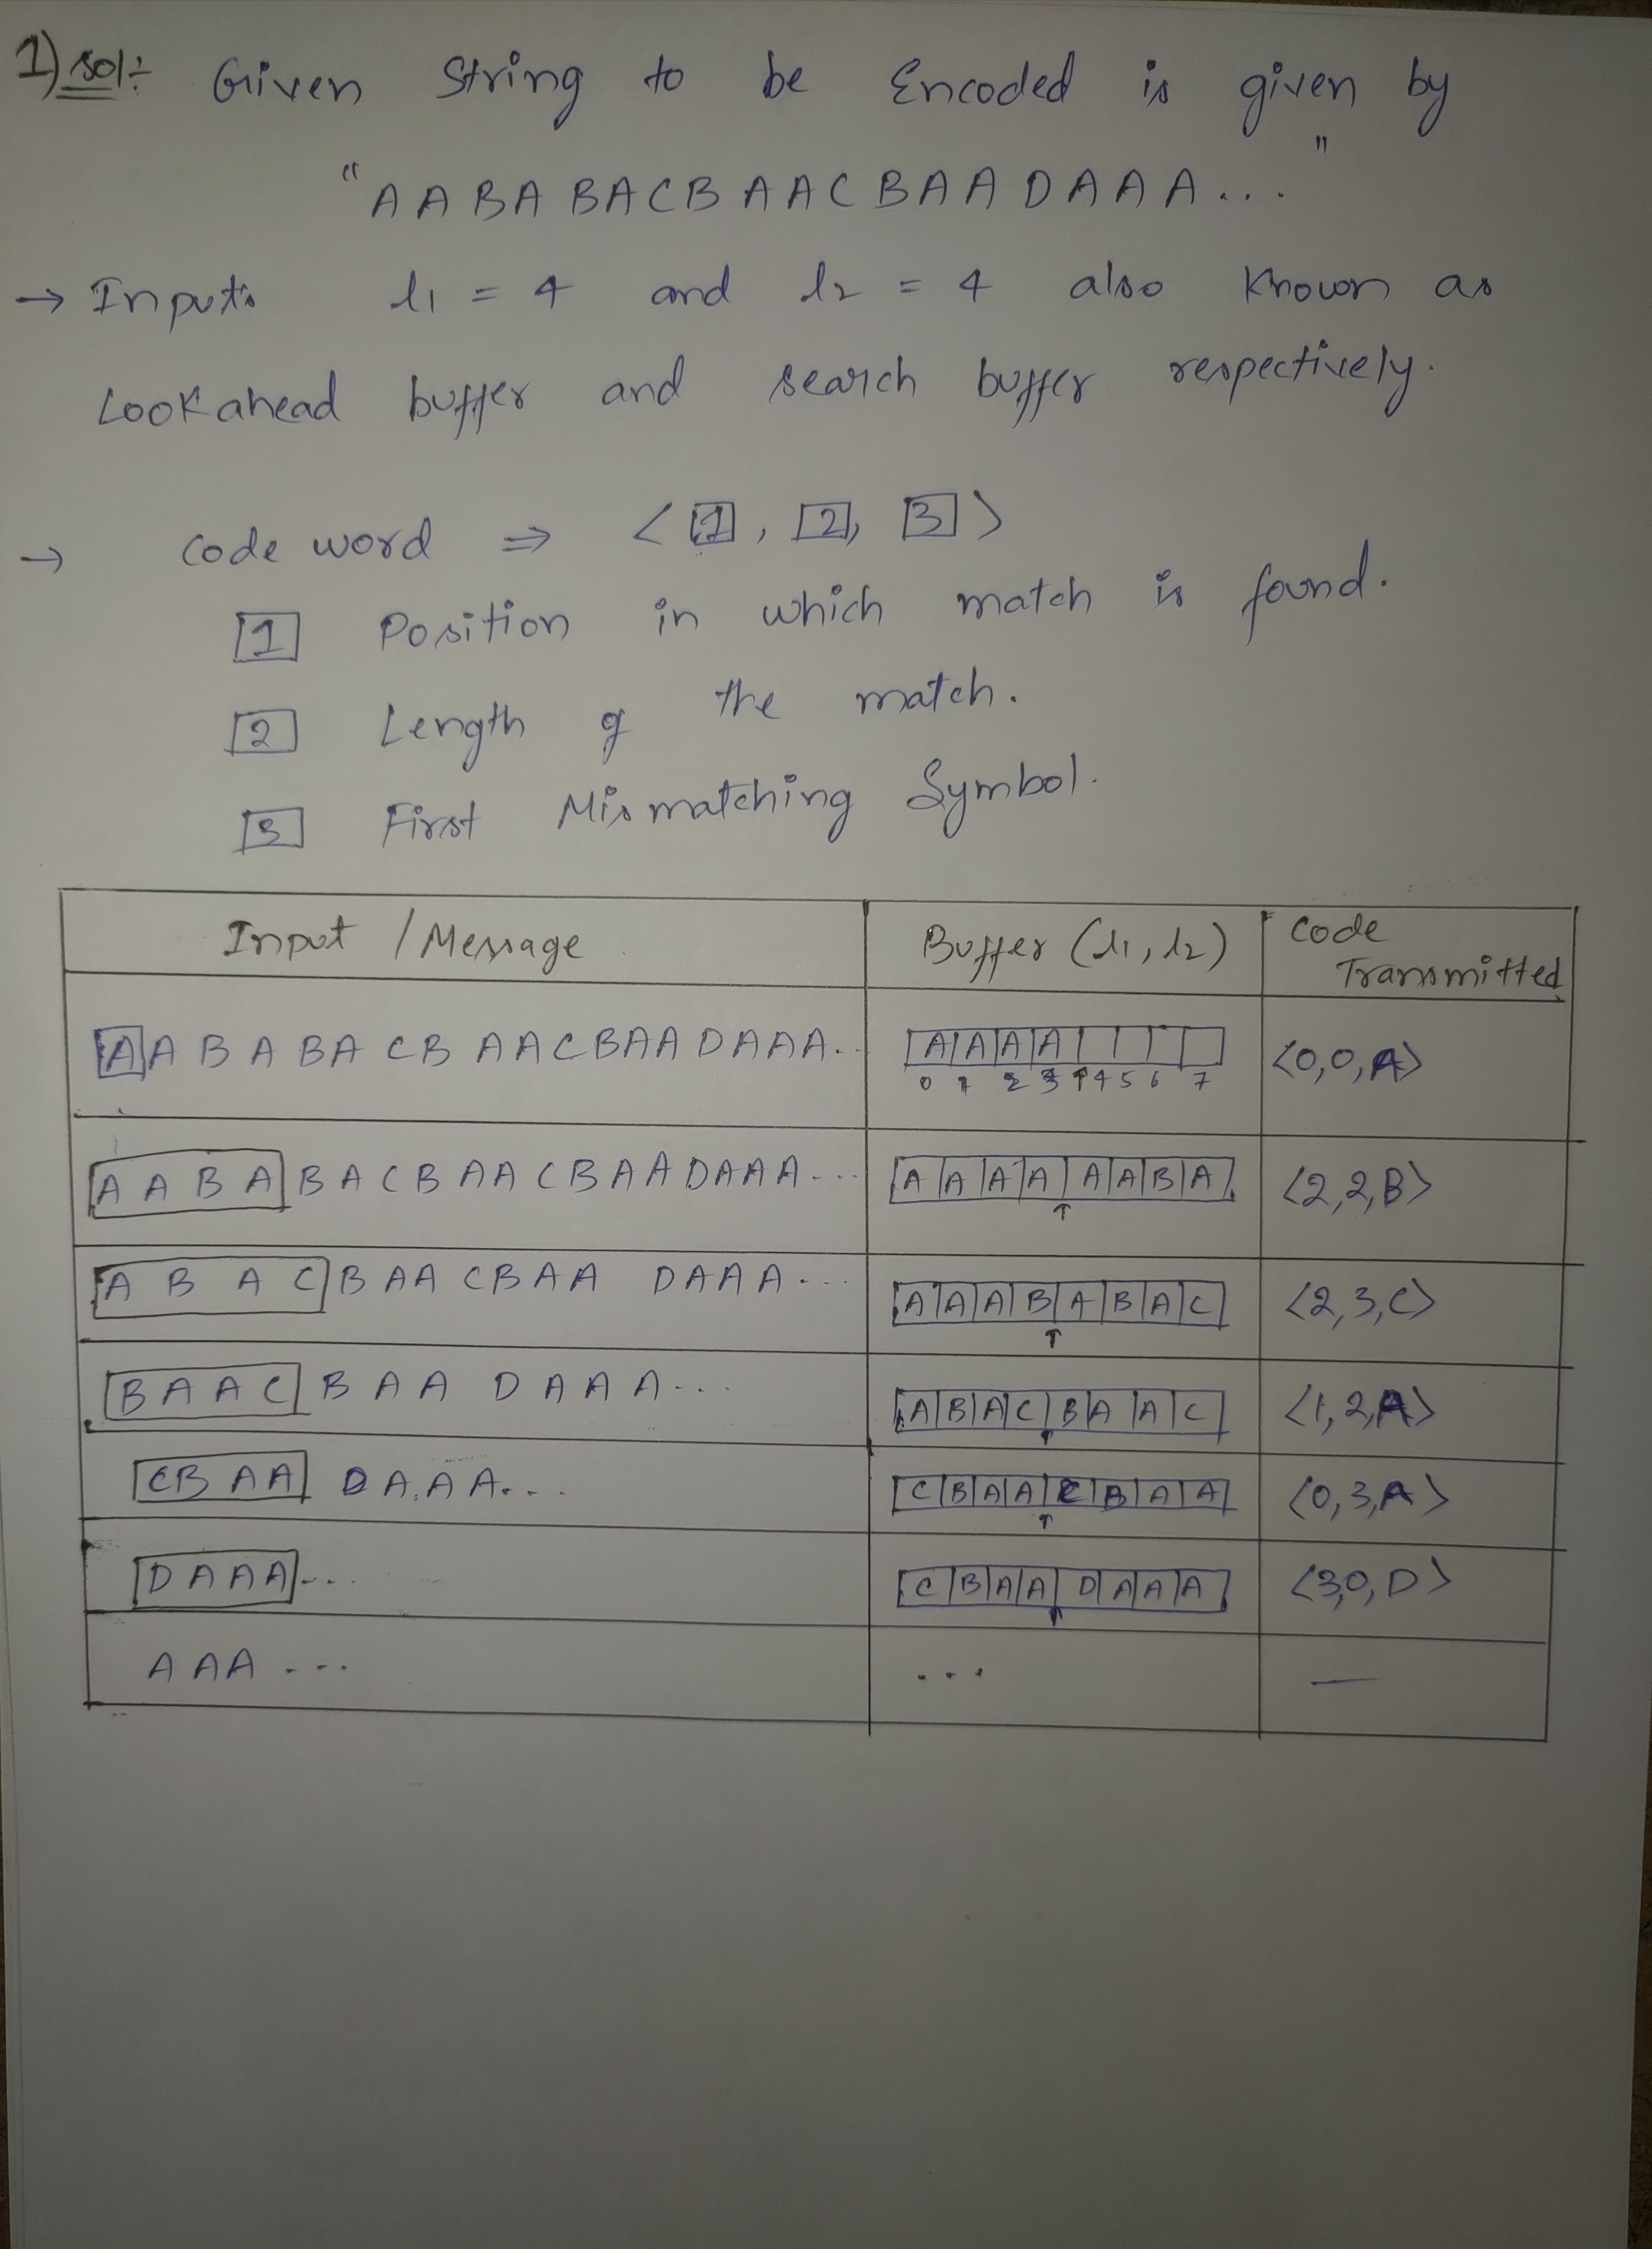 1) Sol:- Given String to be Encoded is given by
"AABABACBAACBAADAAA..."
→ Inputs l1 = 4 and l2 = 4 also known as
Lookahead buffer and search buffer respectively.
→ Code word ⇒ <1, 2, 3>
1 Position in which match is found.
2 Length of the match.
3 First Mismatching Symbol.
Input / Message Buffer (l1, l2) Code Transmitted
AABABACBAACBAADAAA.. AAAA <0,0,A>
0 1 2 3 4 5 6 7
AABABACBAACBAADAAA... AAAAAABA <2,2,B>
ABACBAACBAA DAAA... AAABABAC <2,3,C>
BAACBAA DAAA... ABACBAAC <1,2,A>
CBAA DAAA... CBAACBAA <0,3,A>
DAAA... CBAADAAA <3,0,D>
AAA... ... —